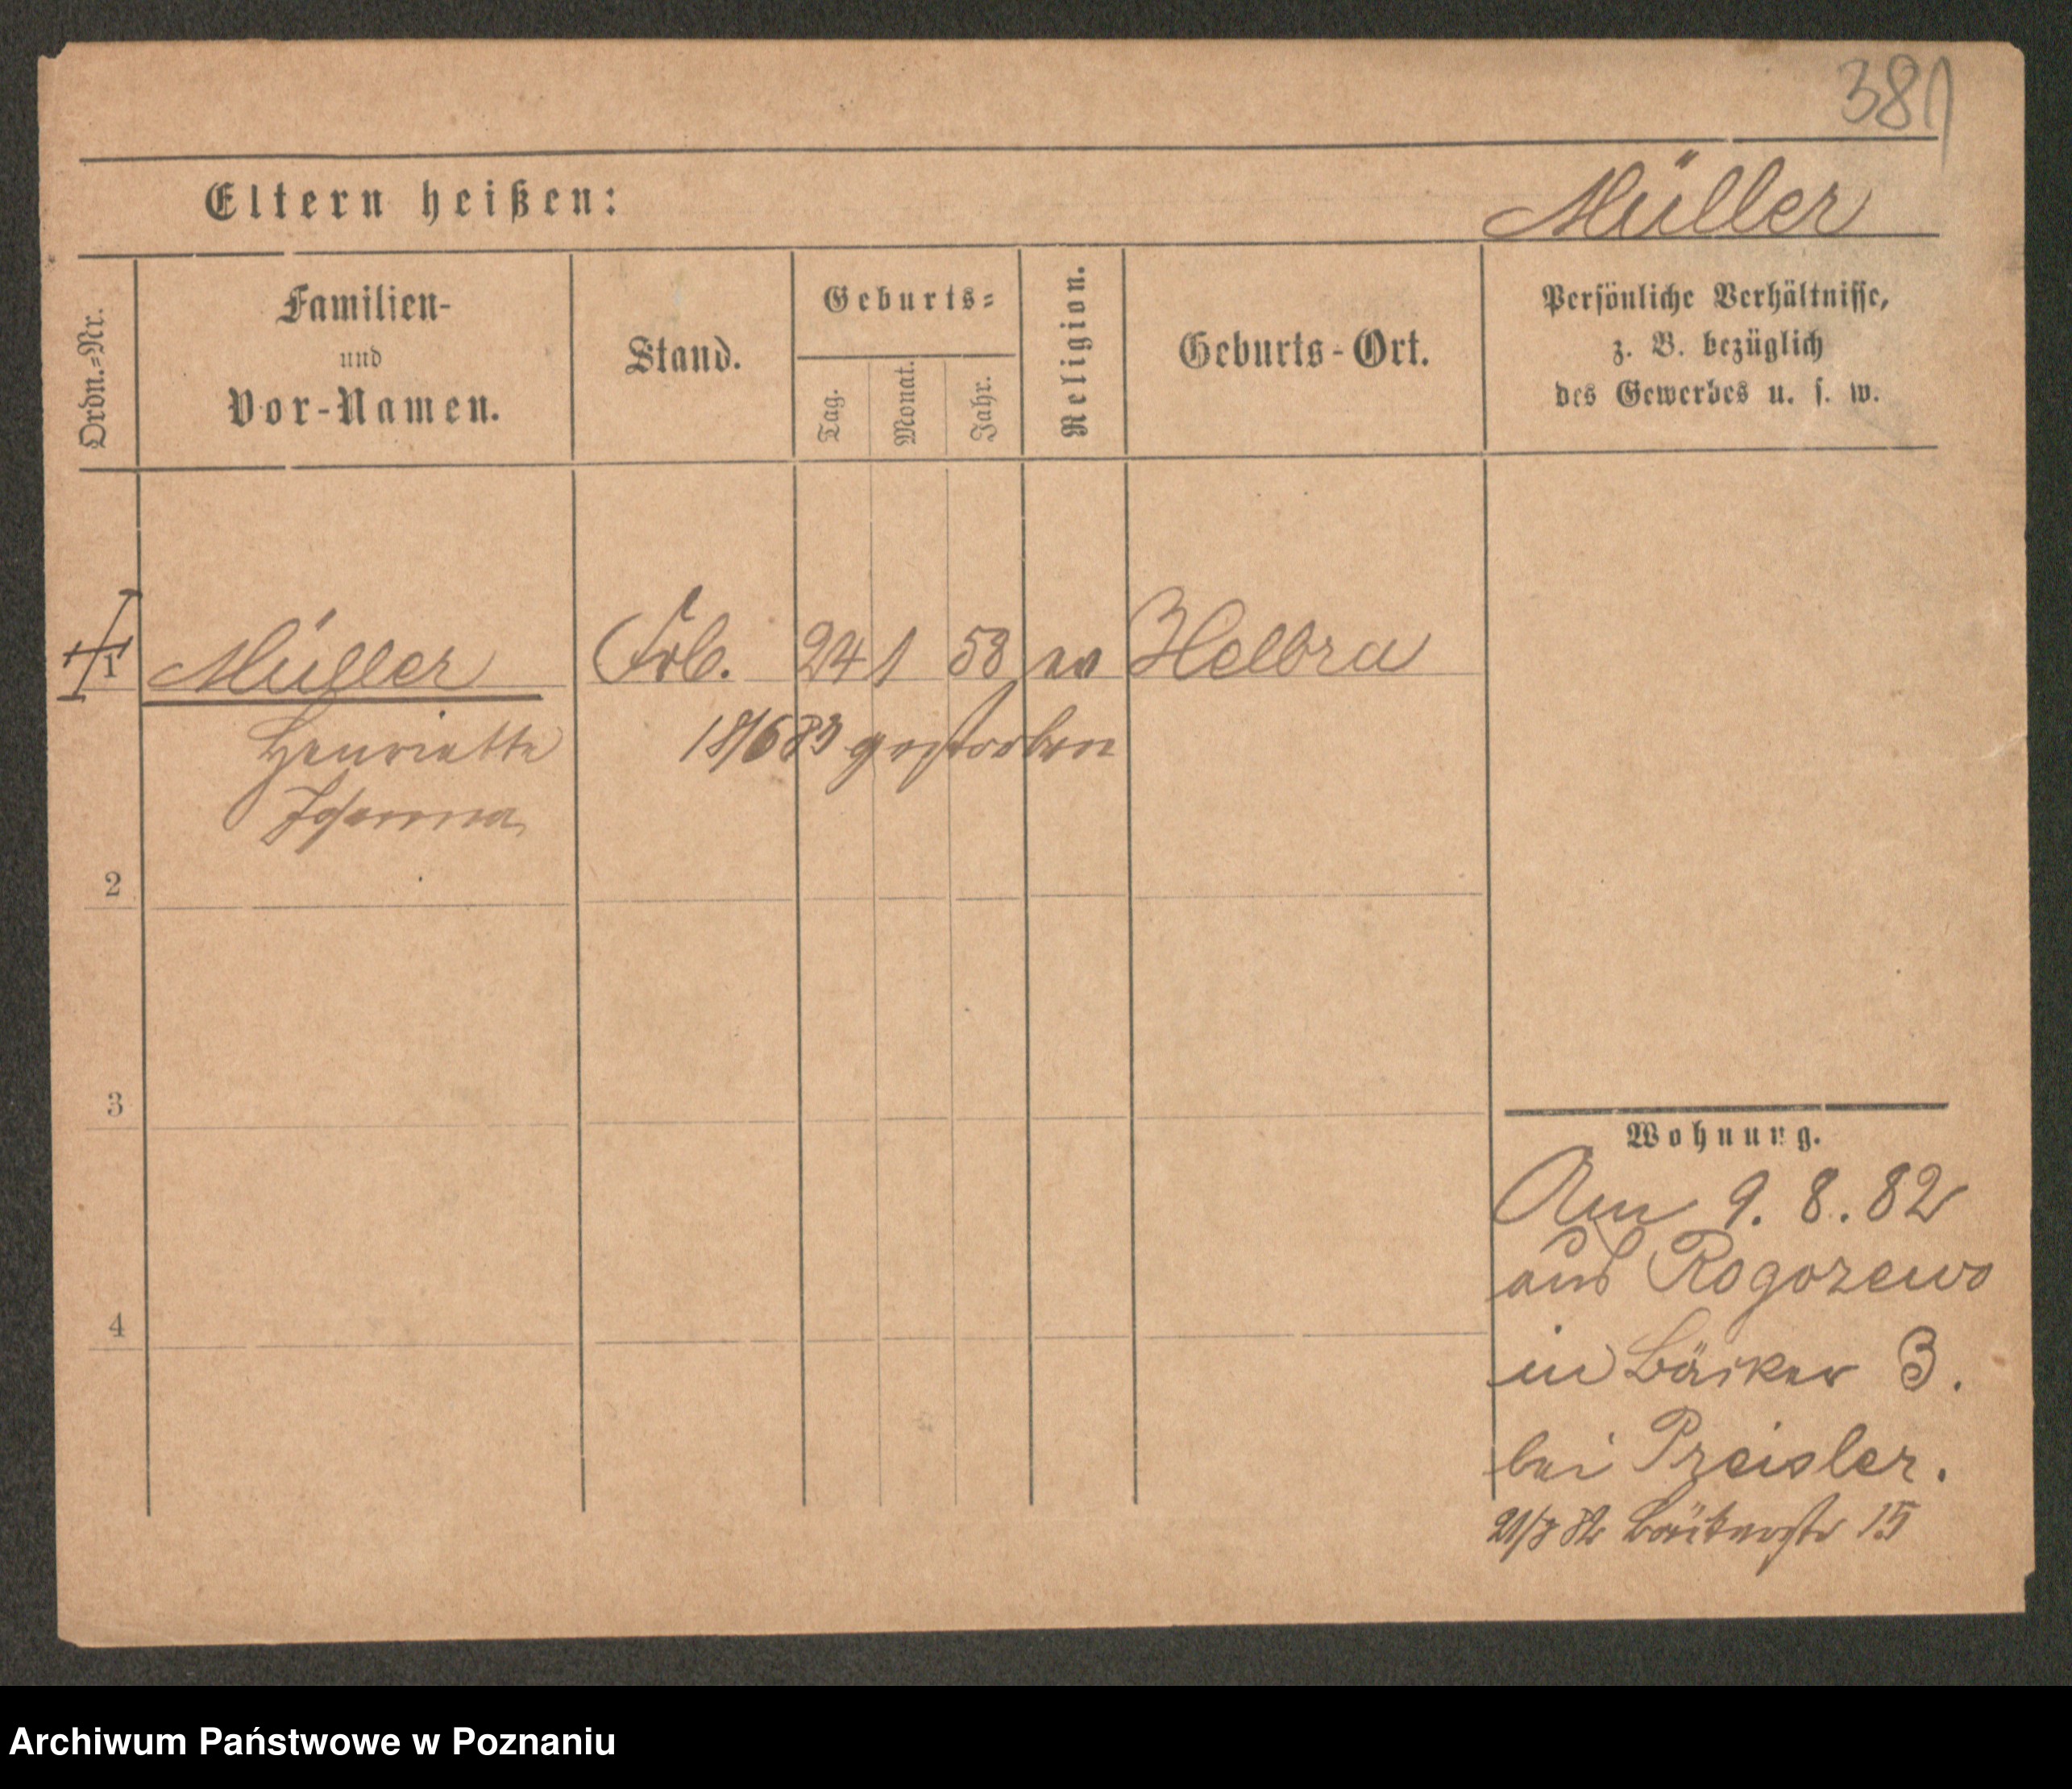 381
Eltern heißen:
Müller
Ordn.=Nr.
Familien-
und
Vor-Namen.
Stand.
Geburts=
Tag.
Monat.
Jahr.
Religion.
Geburts-Ort.
Persönliche Verhältnisse,
z. B. bezüglich
des Gewerbes u. s. w.
1 Müller 24 1 58 ev Helbra
Henriette 18/6 83 gestorben
Johanna
2
3
4
Wohnung.
Am 9. 8. 82
aus Rogozewo
in Bäcker 3.
bei Preisler.
21/8 82 Bäckerstr 15
Archiwum Państwowe w Poznaniu